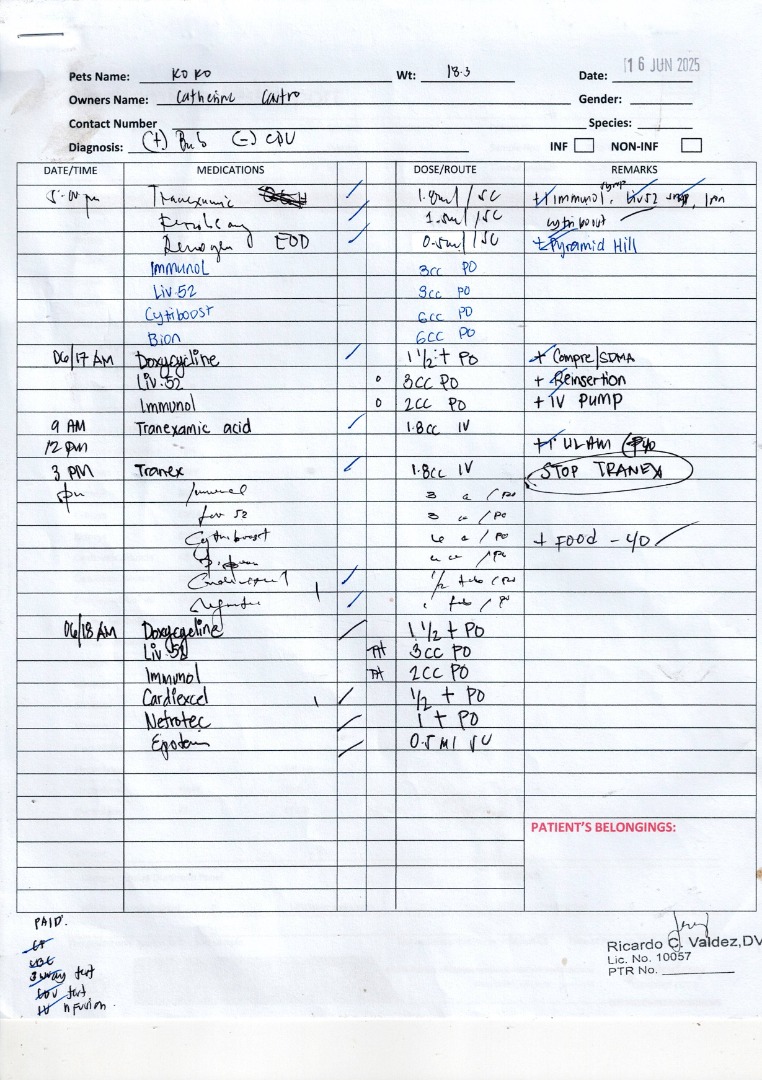 Pets Name: KOKO Wt: 18.3 Date: 16 JUN 2025
Owners Name: Catherine Castro Gender:
Contact Number Species:
Diagnosis: (+) Bab (-) CDV INF NON-INF
DATE/TIME MEDICATIONS DOSE/ROUTE REMARKS
5:00 pm Tranexamic 1.8ml / SC + Immunol, syrup Liv52 Iron
1.8ml / SC
EOD 0.5ml / SC + Pyramid Hill
Immunol 3cc PO
Liv-52 3cc PO
Cytiboost 6cc PO
Bion 6cc PO
06/17 AM Doxycycline 1 1/2 t PO + Compre/SDMA
Liv-52 0 3cc PO + Reinsertion
Immunol 0 2cc PO + IV PUMP
9 AM Tranexamic acid 1.8cc IV
12 pm ULAM
3 PM Tranex 1.8cc IV STOP TRANEX
Immunol 3 / PO
Liv 52 3 / PO
Cytiboost 6 / PO + FOOD - 40
/ PO
1/2 tab / PO
tab / PO
06/18 AM Doxycycline 1 1/2 t PO
Liv 52 3cc PO
Immunol 2cc PO
Cardiexcel 1 1/2 t PO
Nefrotec 1 t PO
0.5 Ml SC
PATIENT'S BELONGINGS:
PAID.
CBC
3 way test
CDV test
IV nFusion.
Ricardo C. Valdez, DV
Lic. No. 10057
PTR No.